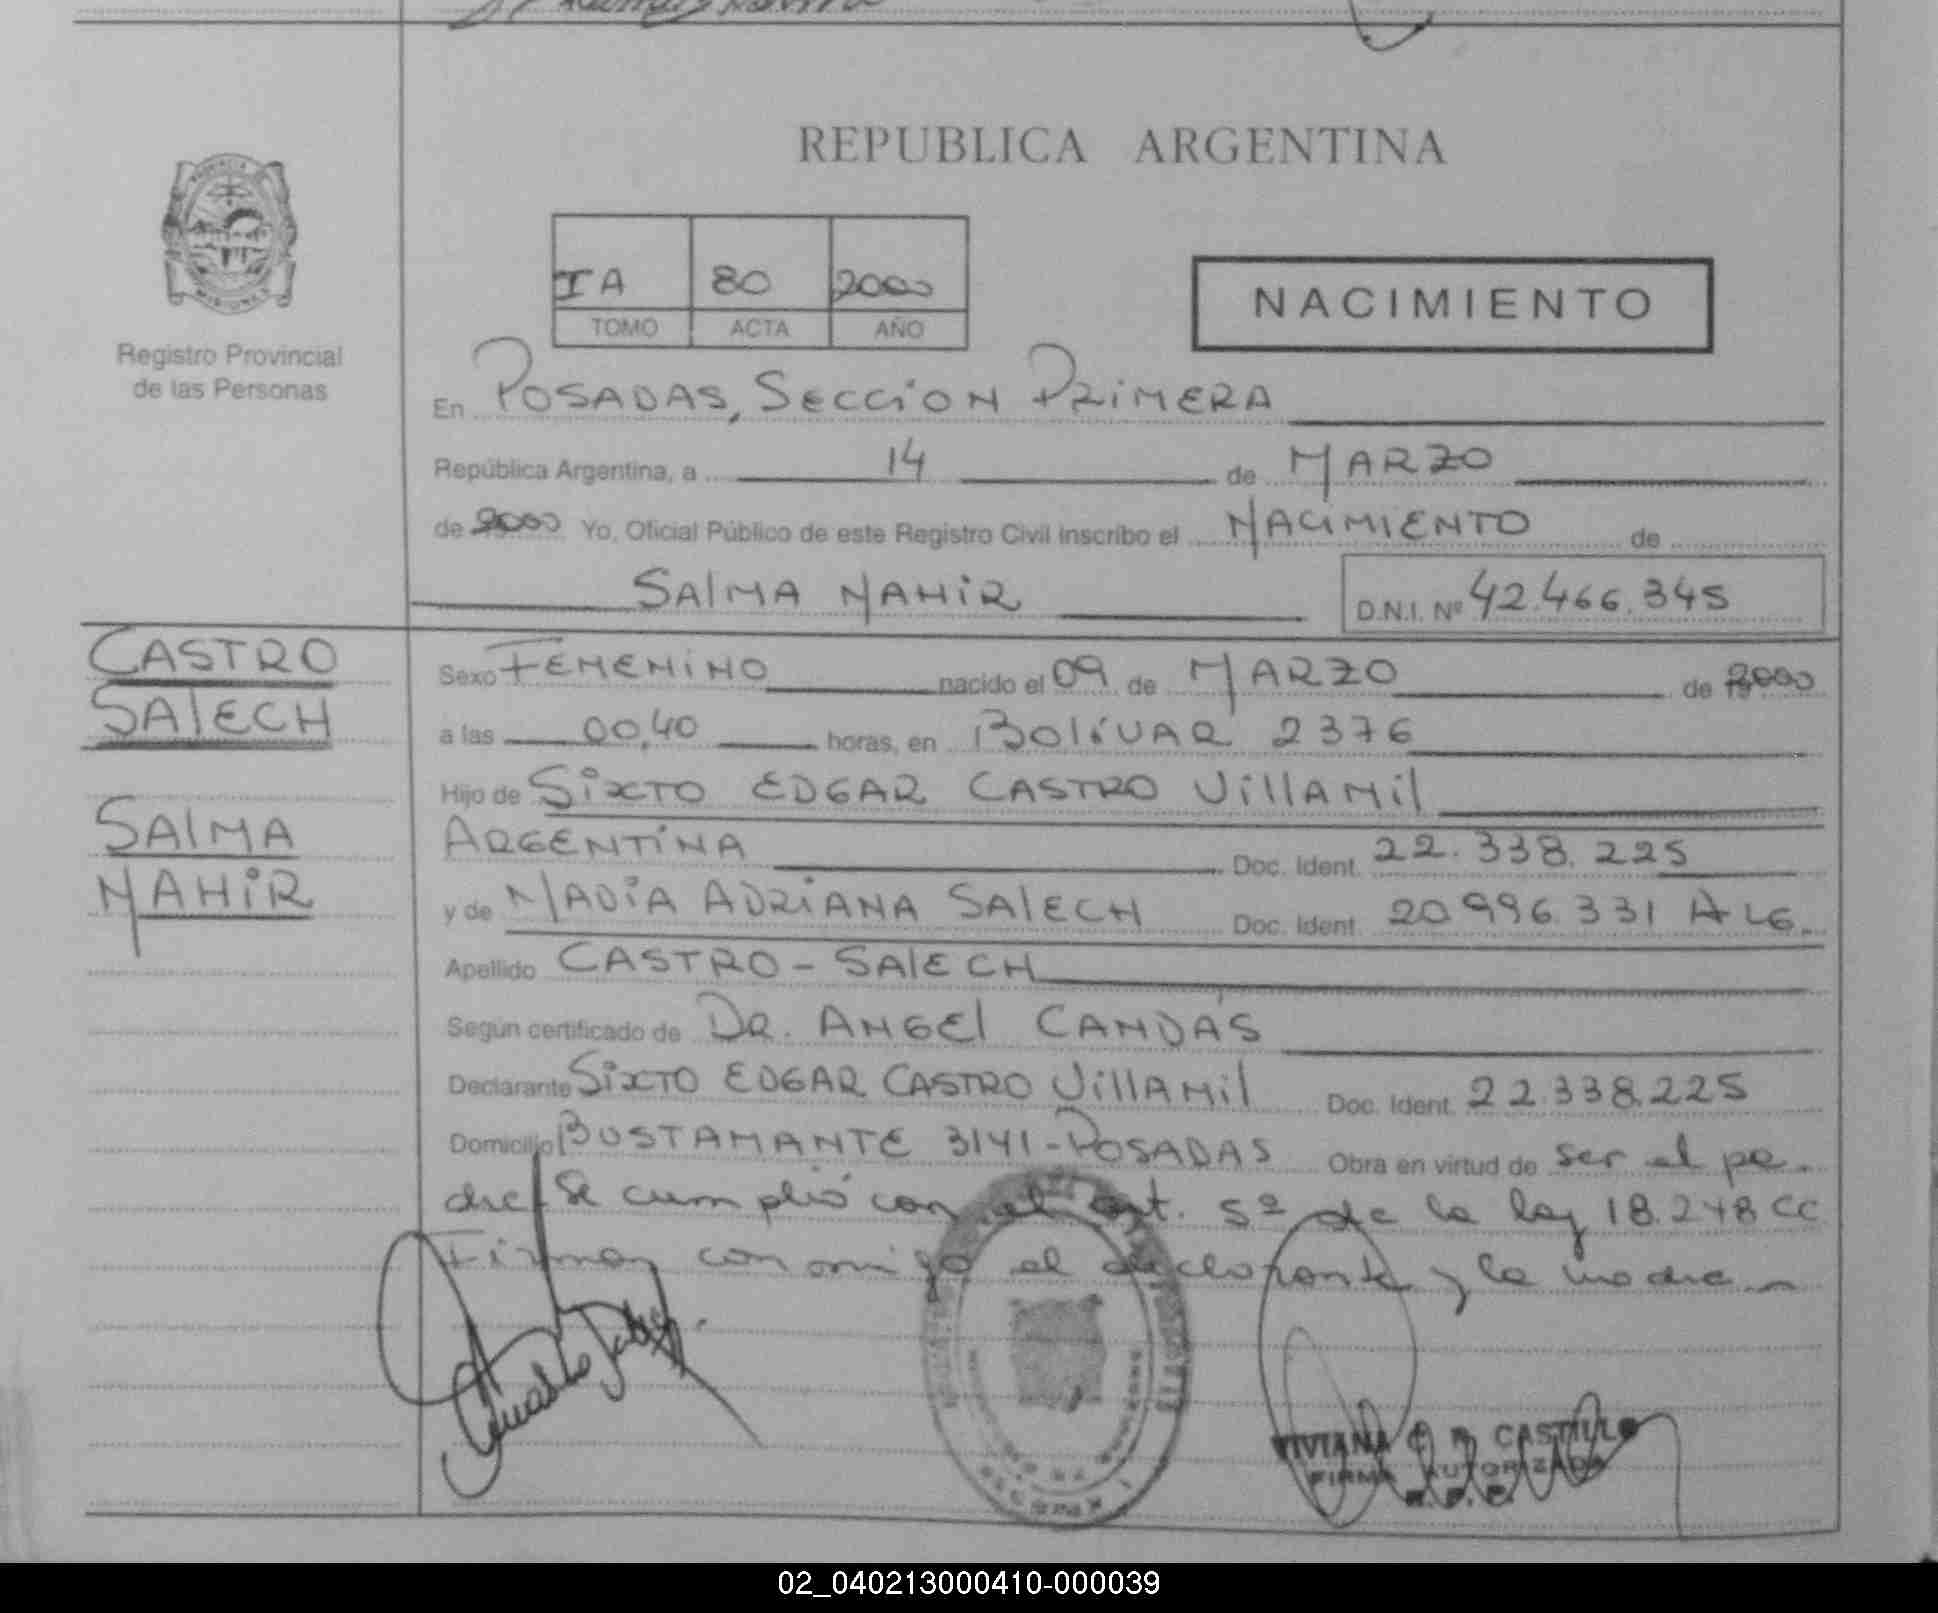 REPUBLICA ARGENTINA
PROVINCIA
MISIONES
Registro Provincial
de las Personas
IA 80 2000
TOMO ACTA AÑO
NACIMIENTO
En POSADAS, SECCION PRIMERA
República Argentina, a 14 de MARZO
de 2000 Yo, Oficial Público de este Registro Civil inscribo el NACIMIENTO de
SALMA NAHIR D.N.I. Nº 42.466.345
CASTRO
SALECH
SALMA
NAHIR
Sexo FEMENINO nacido el 09 de MARZO de 2000
a las 00,40 horas, en BOLÍVAR 2376
Hijo de SIXTO EDGAR CASTRO VILLAMIL
ARGENTINA Doc. Ident. 22.338.225
y de NADIA ADRIANA SALECH Doc. Ident. 20.996.331 ALG.
Apellido CASTRO-SALECH
Según certificado de DR. ANGEL CANDÁS
Declarante SIXTO EDGAR CASTRO VILLAMIL Doc. Ident. 22.338.225
Domicilio BUSTAMANTE 3141-POSADAS Obra en virtud de ser el pa-
dre. Se cumplió con el art. 5º de la ley 18.248 CC
Firman conmigo el declarante y la madre
VIVIANA C. R. CASTILLO
FIRMA AUTORIZADA
R. P. P.
02_040213000410-000039